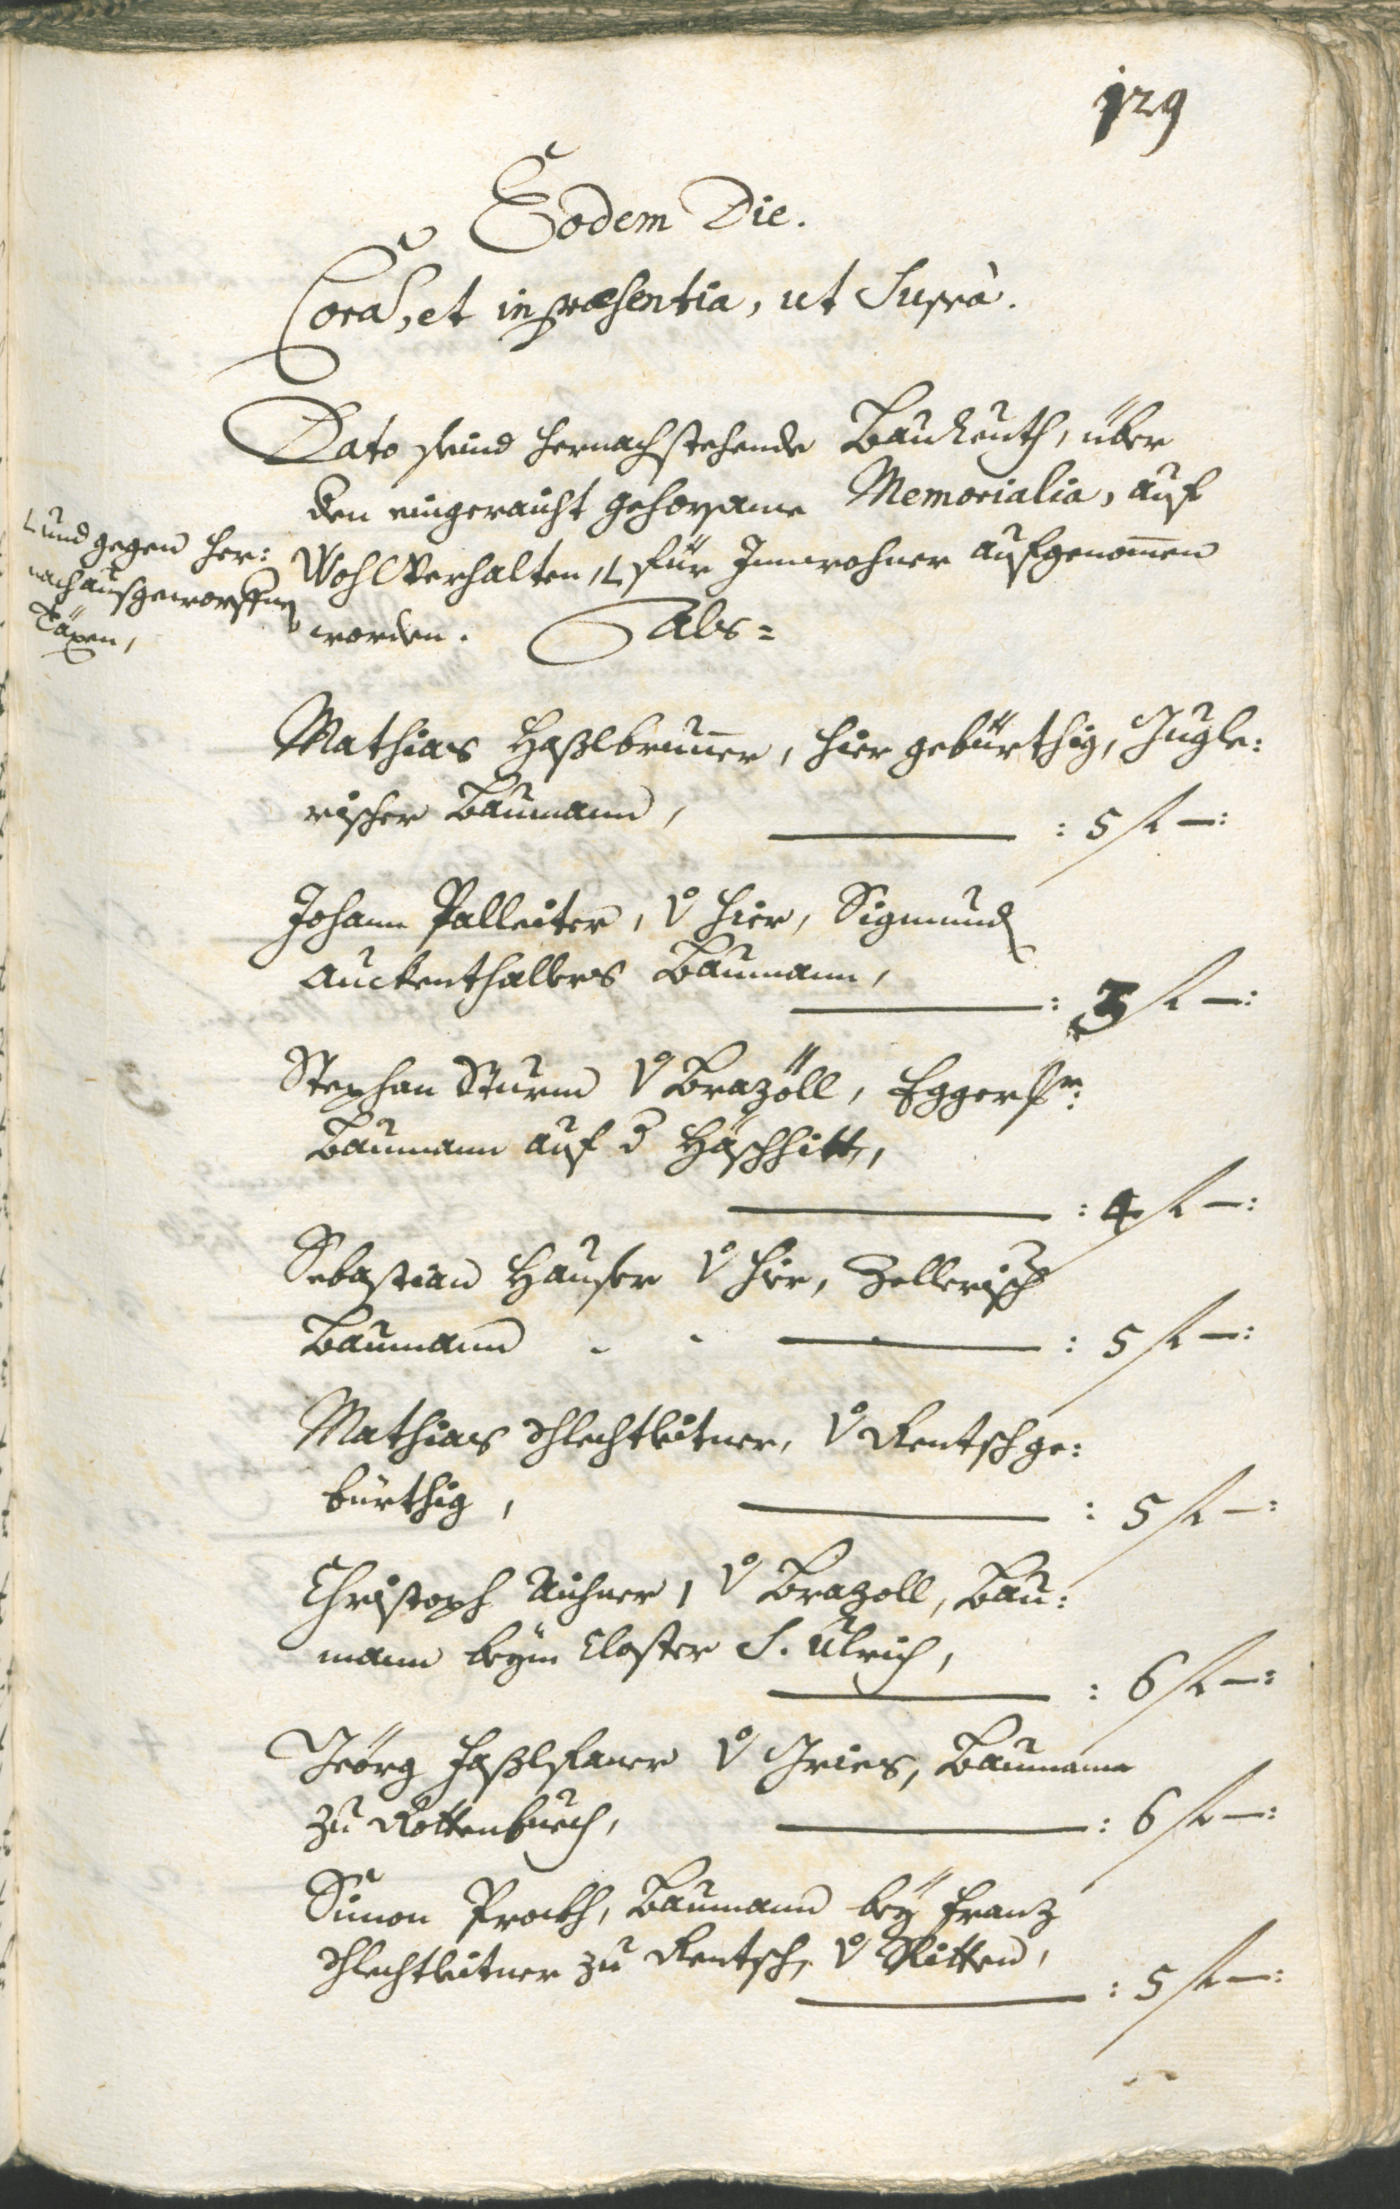 129
Eodem Die.
Cora), et in præsentia, ut Suprà.
Dato seind hernachstehende Bauleuth, über
den eingeraicht gehorsame Memorialia, auf
Wohlverhalten, für Innwohner aufgenom̄en
worden. Als=
und gegen her:
nach ausgeworffnen
Taxen,
Mathias Haßlbrun̄er, hier gebürthig,
rischer Baumann, : 5 f —:
Johann Palleiter, v hier, Sigmund
Auckenthallers Baumann, : 3 f —:
Stephan Sturm v Brazöll, Egger
Baumann auf d
: 4 f —:
Sebastian Hauser v hier, Zellerisch
Baumann - - : 5 f —:
Mathias Schlechtleitner, v Rentsch ge:
bürthig, : 5 f —:
Christoph Aichner, v Brazoll, Bau:
mann beÿm Closter S. Ulrich,
: 6 f —:
Geörg v Gries, Baumann
zu Rottenbuech, : 6 f —:
Simon Prackh, Baumann beÿ Franz
Schlechtleitner zu Rentsch, v Ritten,
: 5 f —: